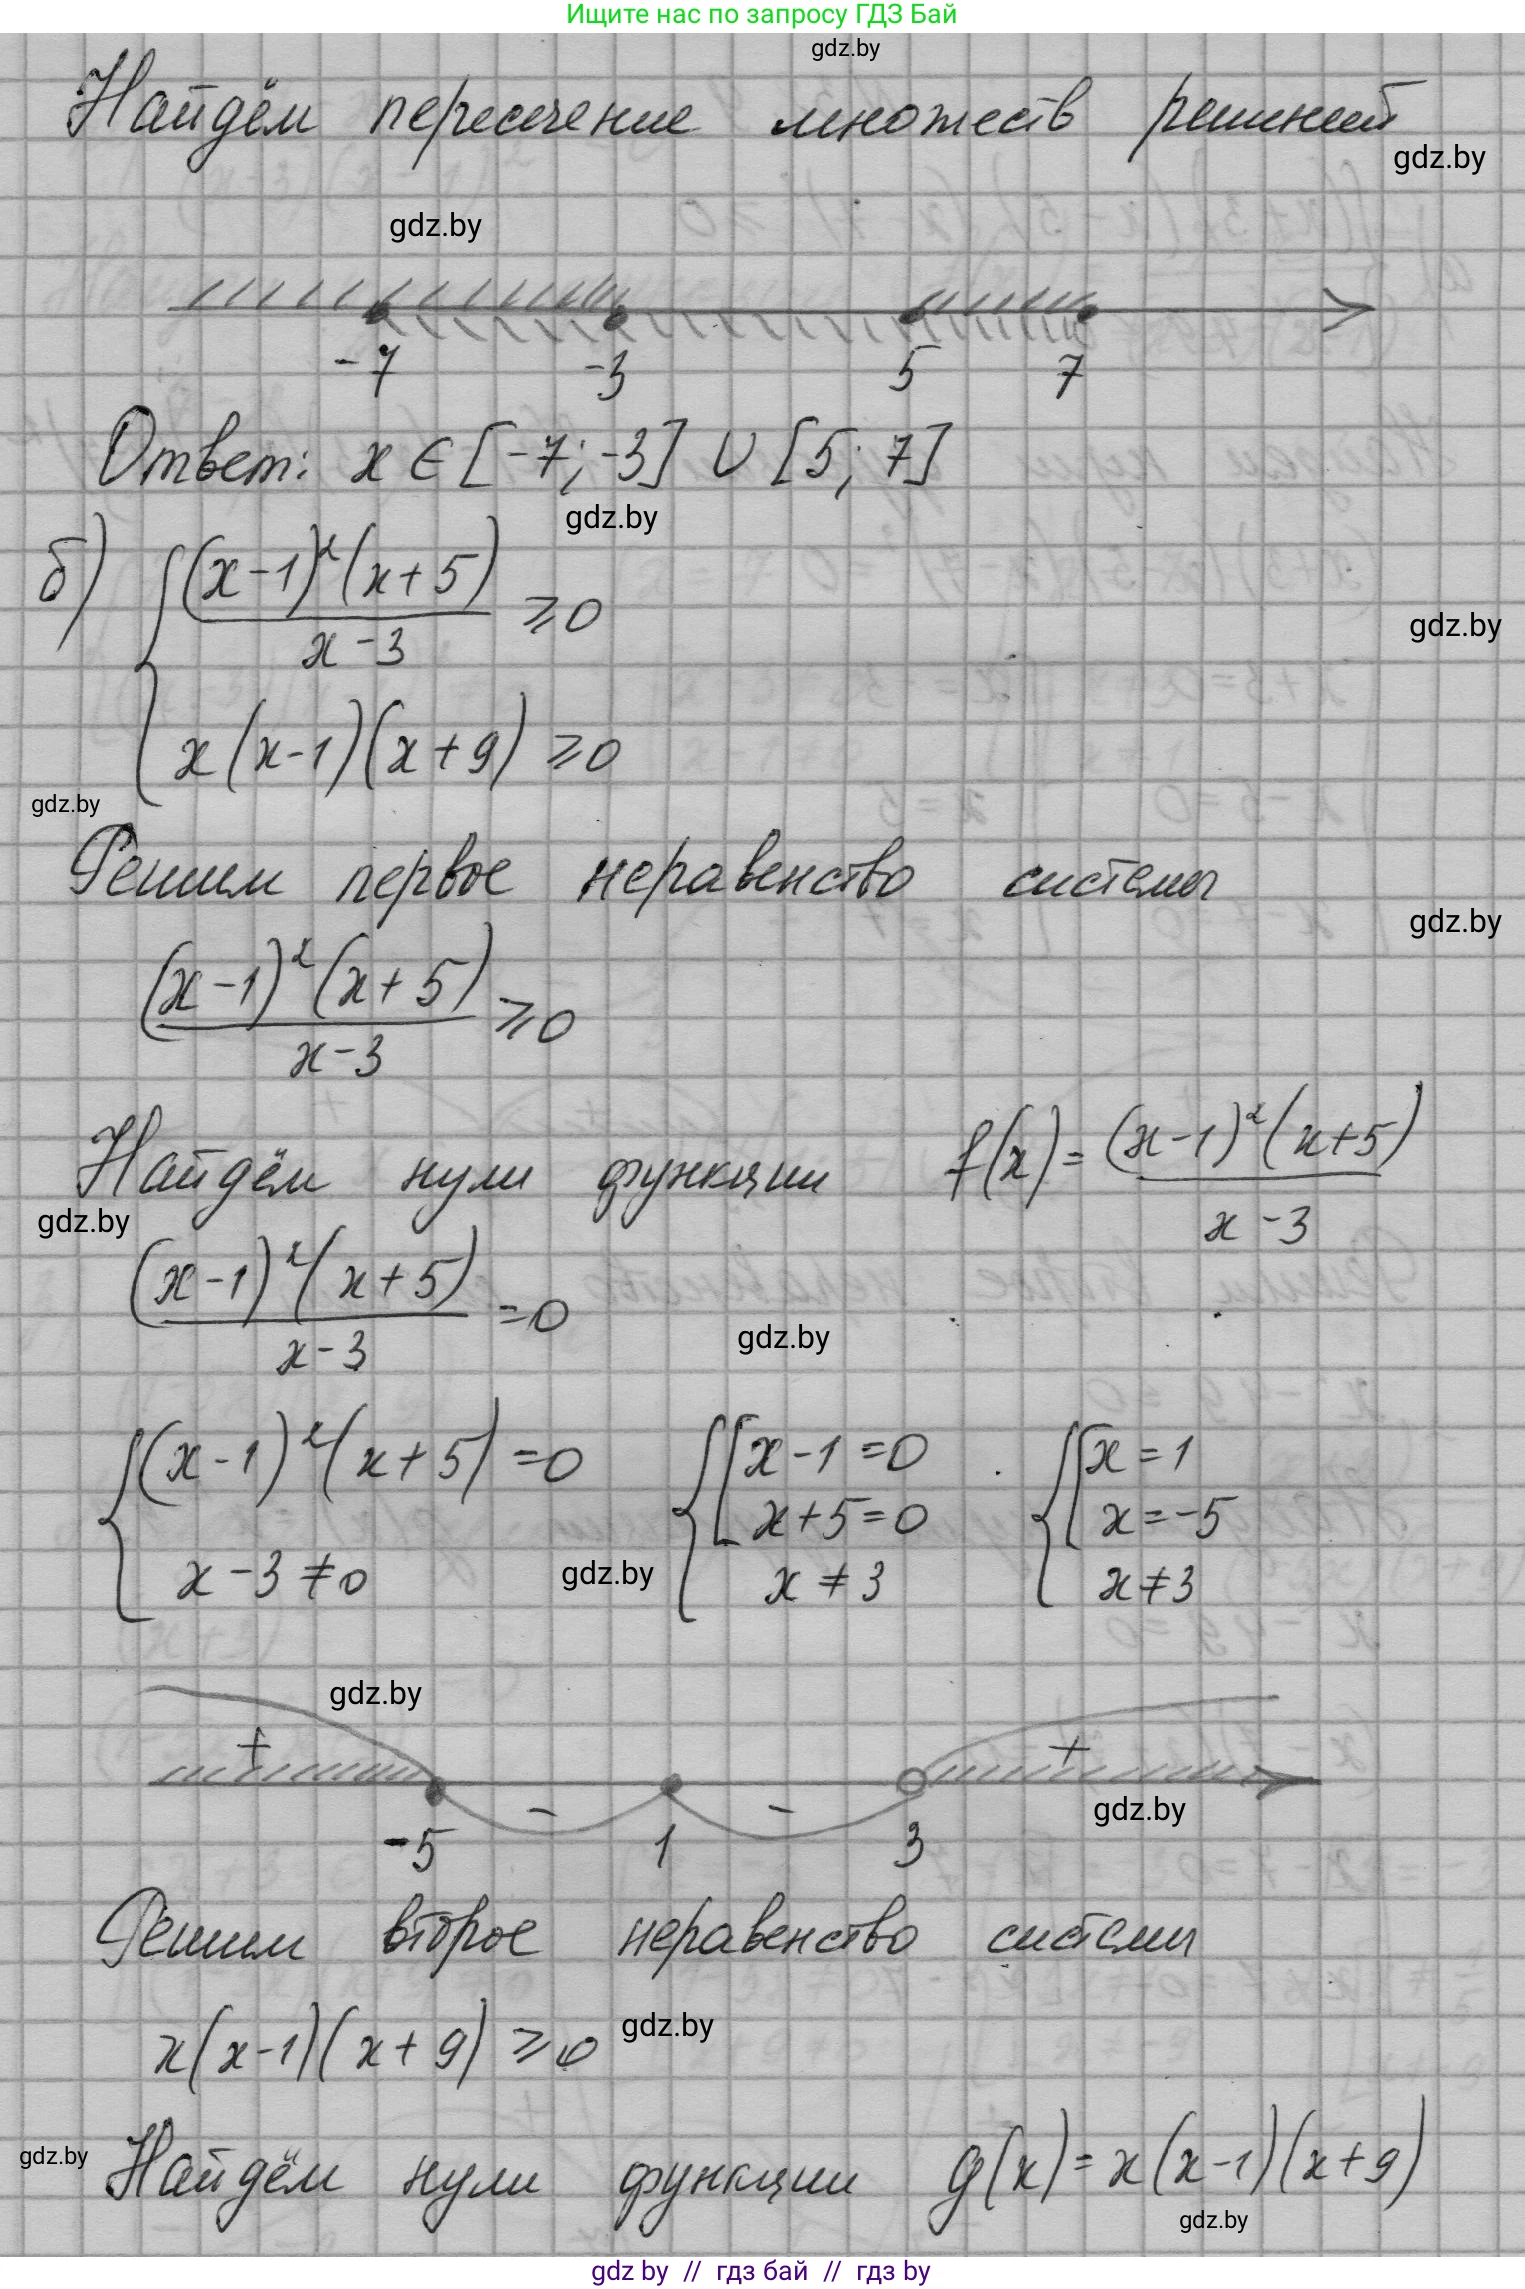 Ищите нас по запросу ГДЗ Бай
gdz.by
Найдём пересечение множеств решений
gdz.by
gdz.by
-7 -3 5 7
Ответ: x ∈ [-7; -3] ∪ [5; 7]
gdz.by
б) { (x-1)²(x+5) / x-3 ≥ 0
gdz.by
x(x-1)(x+9) ≥ 0
gdz.by
Решим первое неравенство системы
gdz.by
(x-1)²(x+5) / x-3 ≥ 0
Найдём нули функции f(x) = (x-1)²(x+5) / x-3
gdz.by
(x-1)²(x+5) / x-3 = 0
gdz.by
{ (x-1)²(x+5) = 0 { [ x-1 = 0 { [ x = 1
x+5 = 0 x = -5
x-3 ≠ 0 gdz.by x ≠ 3 x ≠ 3
gdz.by
+ - - +
gdz.by
-5 1 3
Решим второе неравенство системы
x(x-1)(x+9) ≥ 0 gdz.by
gdz.by
Найдём нули функции g(x) = x(x-1)(x+9)
gdz.by
gdz by // гдз бай // gdz by